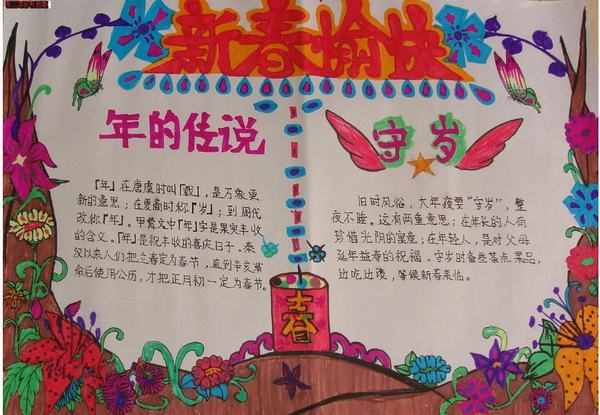 新春愉快
年的传说
「年」在唐虞时叫「载」，是万象更
新的意思；在夏商时称「岁」；到周代
改称「年」。甲骨文中「年」字是果实丰收
的含义。「年」是祝丰收的喜庆日子。秦
汉以来人们把立春定为春节，直到辛亥革
命后使用公历，才把正月初一定为春节。
守岁
旧时风俗，大年夜要"守岁"，整
夜不睡。这有两重意思：在年长的人有
珍惜光阴的寓意；在年轻人，是对父母
延年益寿的祝福。守岁时备些茶点果品，
边吃边谈，等候新春来临。
春